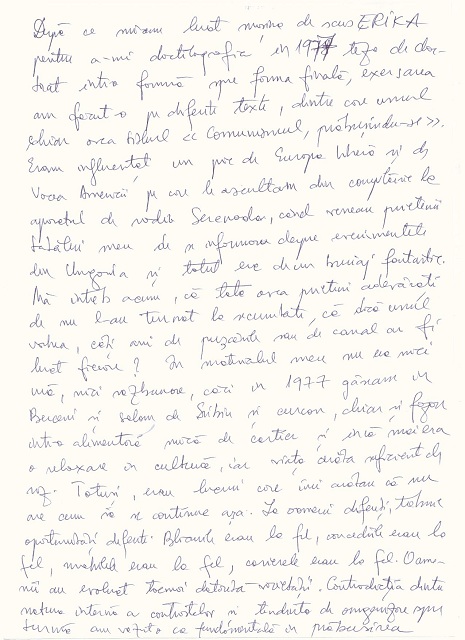 După ce mi-am luat mașina de scris ERIKA
pentru a-mi dactilografia în 1977 teza de doc-
torat într-o formă spre forma finală, exersarea
am făcut-o pe diferite texte, dintre care unul
chiar avea titlul << Comunismul, prăbușindu-se >>.
Eram influențat un pic de Europa liberă și de
Vocea Americii pe care le ascultam din copilărie la
aparatul de radio Serenada, când veneau prietenii
tatălui meu de se informau despre evenimentele
din Ungaria și totul era de un bruiaj fantastic.
Mă întreb acum, că tata avea prieteni adevărați
de nu l-au turnat la securitate, că dacă unul
vorbea, câți ani de pușcărie sau de canal ar fi
luat fiecare? În materialul meu nu era nici
ură, nici răzbunare, căci în 1977 găseam în
Berceni și salam de Sibiu și curcan, chiar și fazan
într-o alimentară mică de cartier și încă mai era
o relaxare în cultură, iar viața arăta suficient de
roz. Totuși, erau lucruri care îmi arătau că nu
are cum să se continue așa. La oameni diferiți, trebuie
oportunități diferite. Blocurile erau la fel, concediile erau la
fel, mobilele erau la fel, carierele erau la fel. Oame-
nii au evoluat tocmai datorită varietății. Contradicția dintre
natura internă a contrastelor și tendința de omogenizare spre
turmă am văzut-o ca fundamentală în prăbușirea